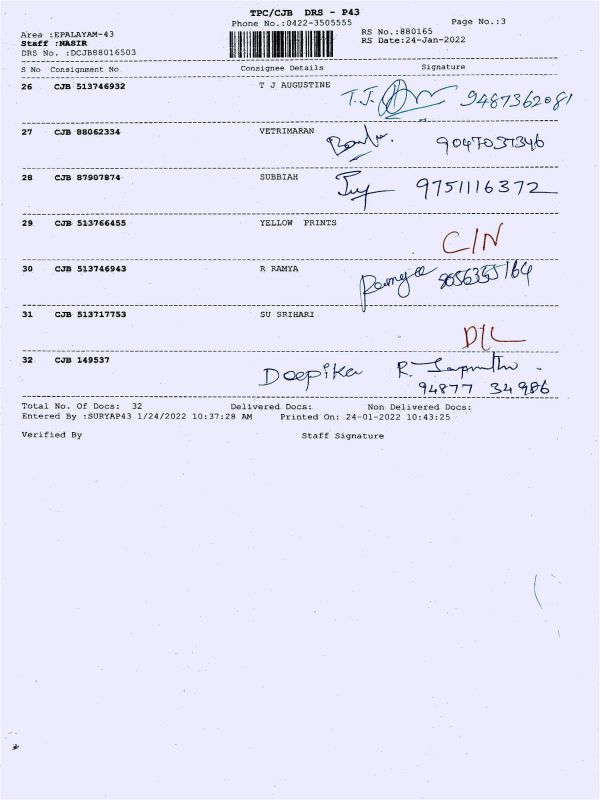 TPC/CJB DRS - P43
Phone No.:0422-3505555 Page No.:3
Area :EPALAYAM-43 RS No.:880165
Staff :NASIR RS Date:24-Jan-2022
DRS No. :DCJB88016503
S No Consignment No Consignee Details Signature
26 CJB 513746932 T J AUGUSTINE T.J. 9487362081
27 CJB 88062334 VETRIMARAN
28 CJB 87907874 SUBBIAH 9751116372
29 CJB 513766455 YELLOW PRINTS C/N
30 CJB 513746943 R RAMYA Ramya
31 CJB 513717753 SU SRIHARI D/L
32 CJB 149537 Deepika R.
94877 34986
Total No. Of Docs: 32 Delivered Docs: Non Delivered Docs:
Entered By :SURYAP43 1/24/2022 10:37:28 AM Printed On: 24-01-2022 10:43:25
Verified By Staff Signature